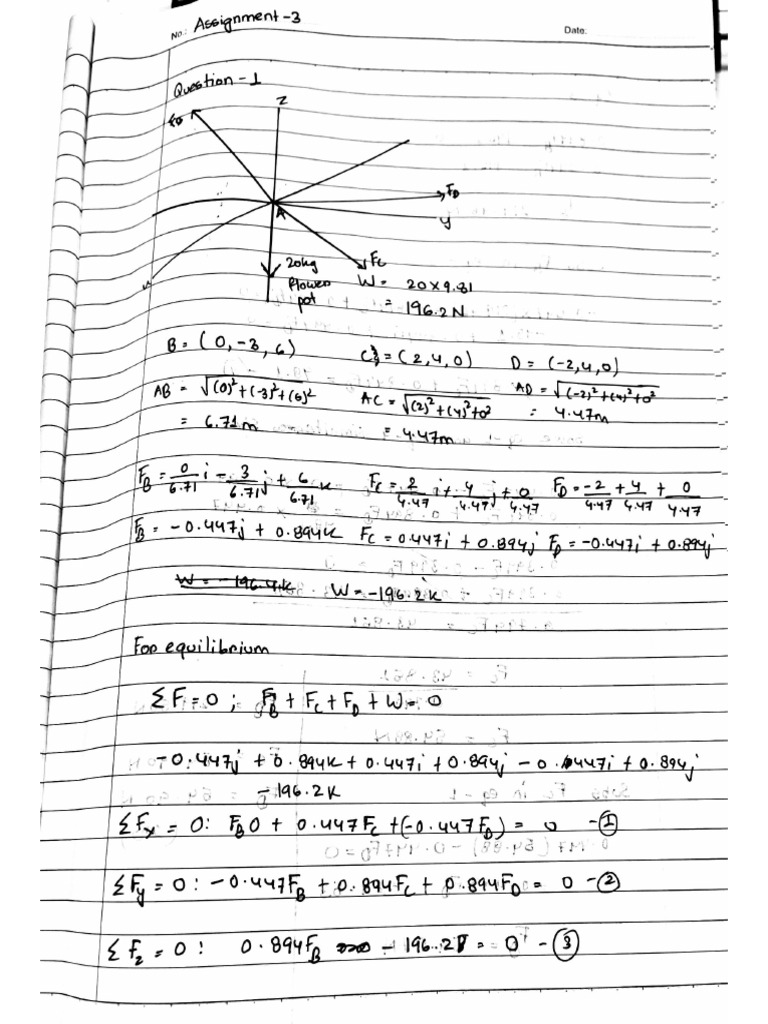 No.: Assignment-3
Date.
Question-1
z
A
F_D
y
F_C
20kg
Flower
pot
W = 20×9.81
= 196.2N
B = (0, -3, 6) C = (2,4,0) D = (-2,4,0)
AB = √(0)²+(-3)²+(6)² AC = √(2)²+(4)²+0² AD = √(-2)²+(4)²+0²
= 6.71m = 4.47m = 4.47m
F_B = 0/6.71 i - 3/6.71 j + 6/6.71 k F_C = 2/4.47 i + 4/4.47 j + 0/4.47 F_D = -2/4.47 + 4/4.47 + 0/4.47
F_B = -0.447j + 0.894k F_C = 0.447i + 0.894j F_D = -0.447i + 0.894j
W = -196.2k
For equilibrium
ΣF = 0 ; F_B + F_C + F_D + W = 0
-0.447j + 0.894k + 0.447i + 0.894j - 0.447i + 0.894j
-196.2k
ΣF_x = 0: F_B 0 + 0.447F_C + (-0.447F_D) = 0 - ①
ΣF_y = 0: -0.447F_B + 0.894F_C + 0.894F_D = 0 - ②
ΣF_z = 0: 0.894F_B - 196.2 = 0 - ③